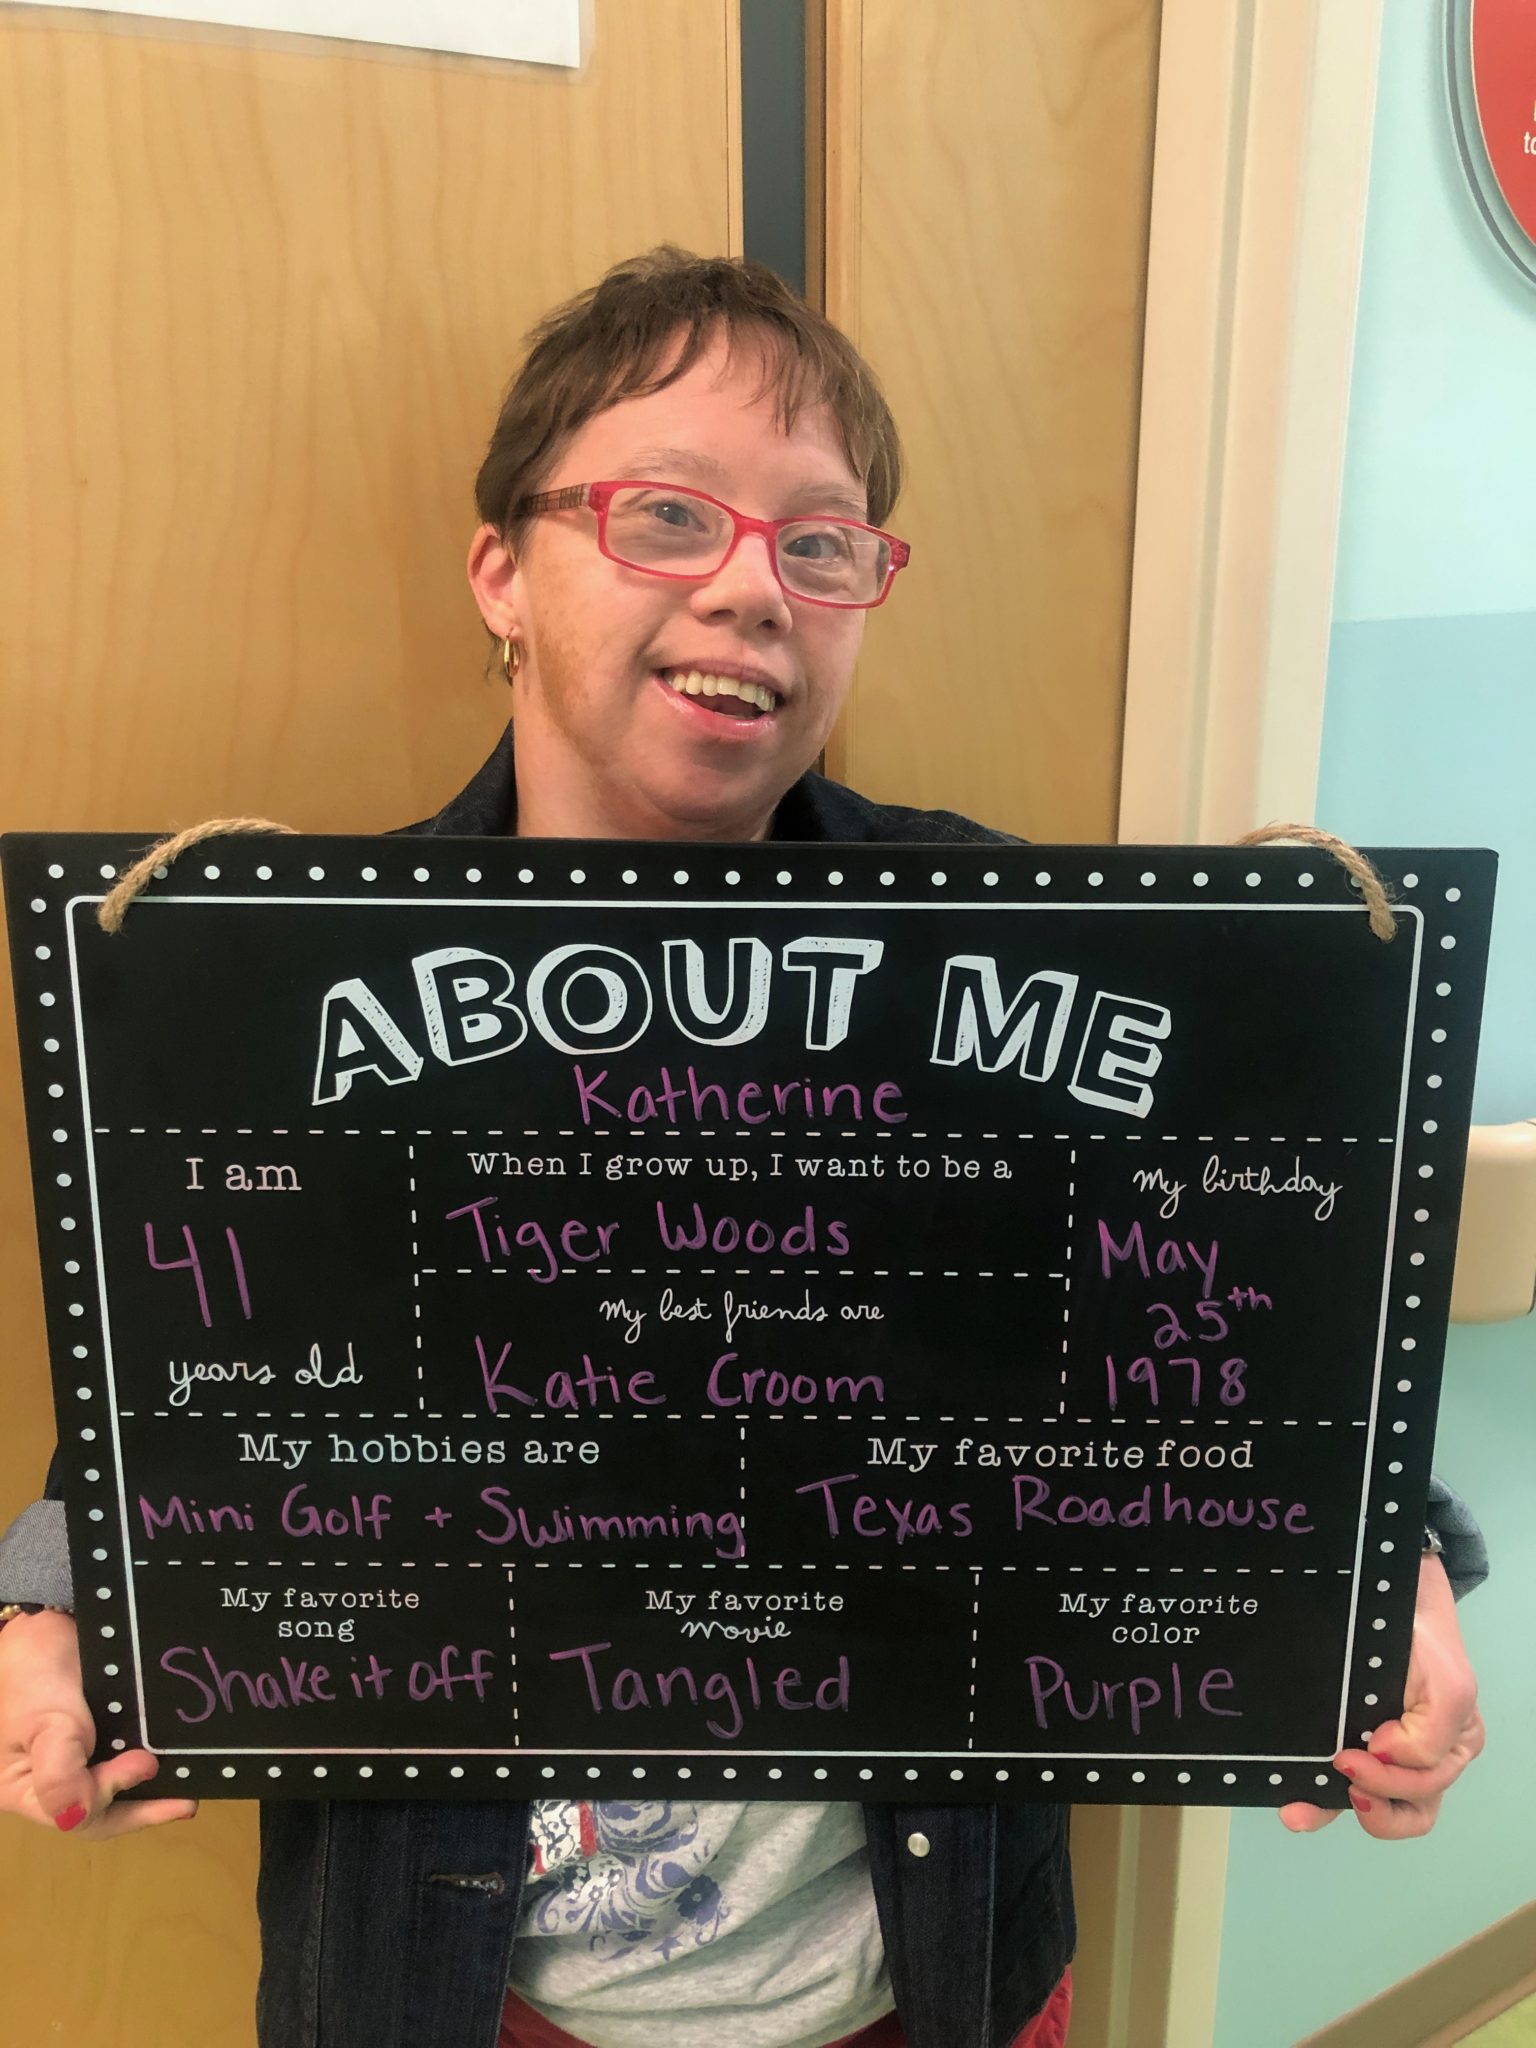 to
ABOUT ME
Katherine
I am
41
years old
When I grow up, I want to be a
Tiger Woods
My best friends are
Katie Croom
My birthday
May
25th
1978
My hobbies are
Mini Golf + Swimming
My favorite food
Texas Roadhouse
My favorite
song
Shake it off
My favorite
movie
Tangled
My favorite
color
Purple